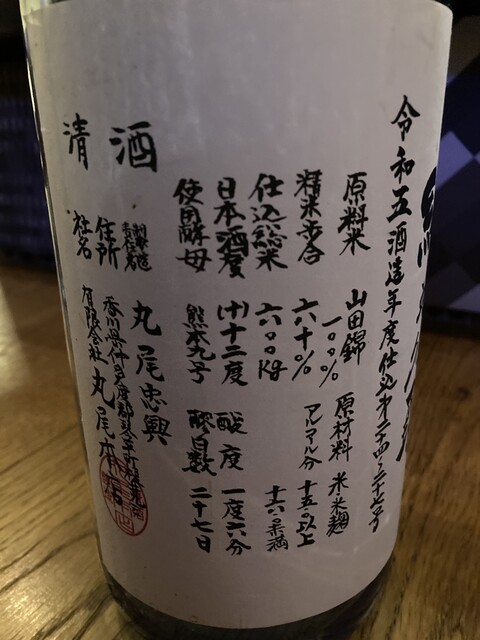 令和五酒造年度仕込第二十四、二十七号
原料米 山田錦一〇〇% 原材料 米・米麹
精米歩合 六十% アルコール分 十五・〇以上
仕込総米 六〇〇kg 十六・〇未満
日本酒度 (+)十二度 酸度 一度六分
使用酵母 熊本九号 醪日数 二十七日
清酒
製造責任者 丸尾忠興
住所 香川県仲多度郡琴平町
社名 有限会社 丸尾本店